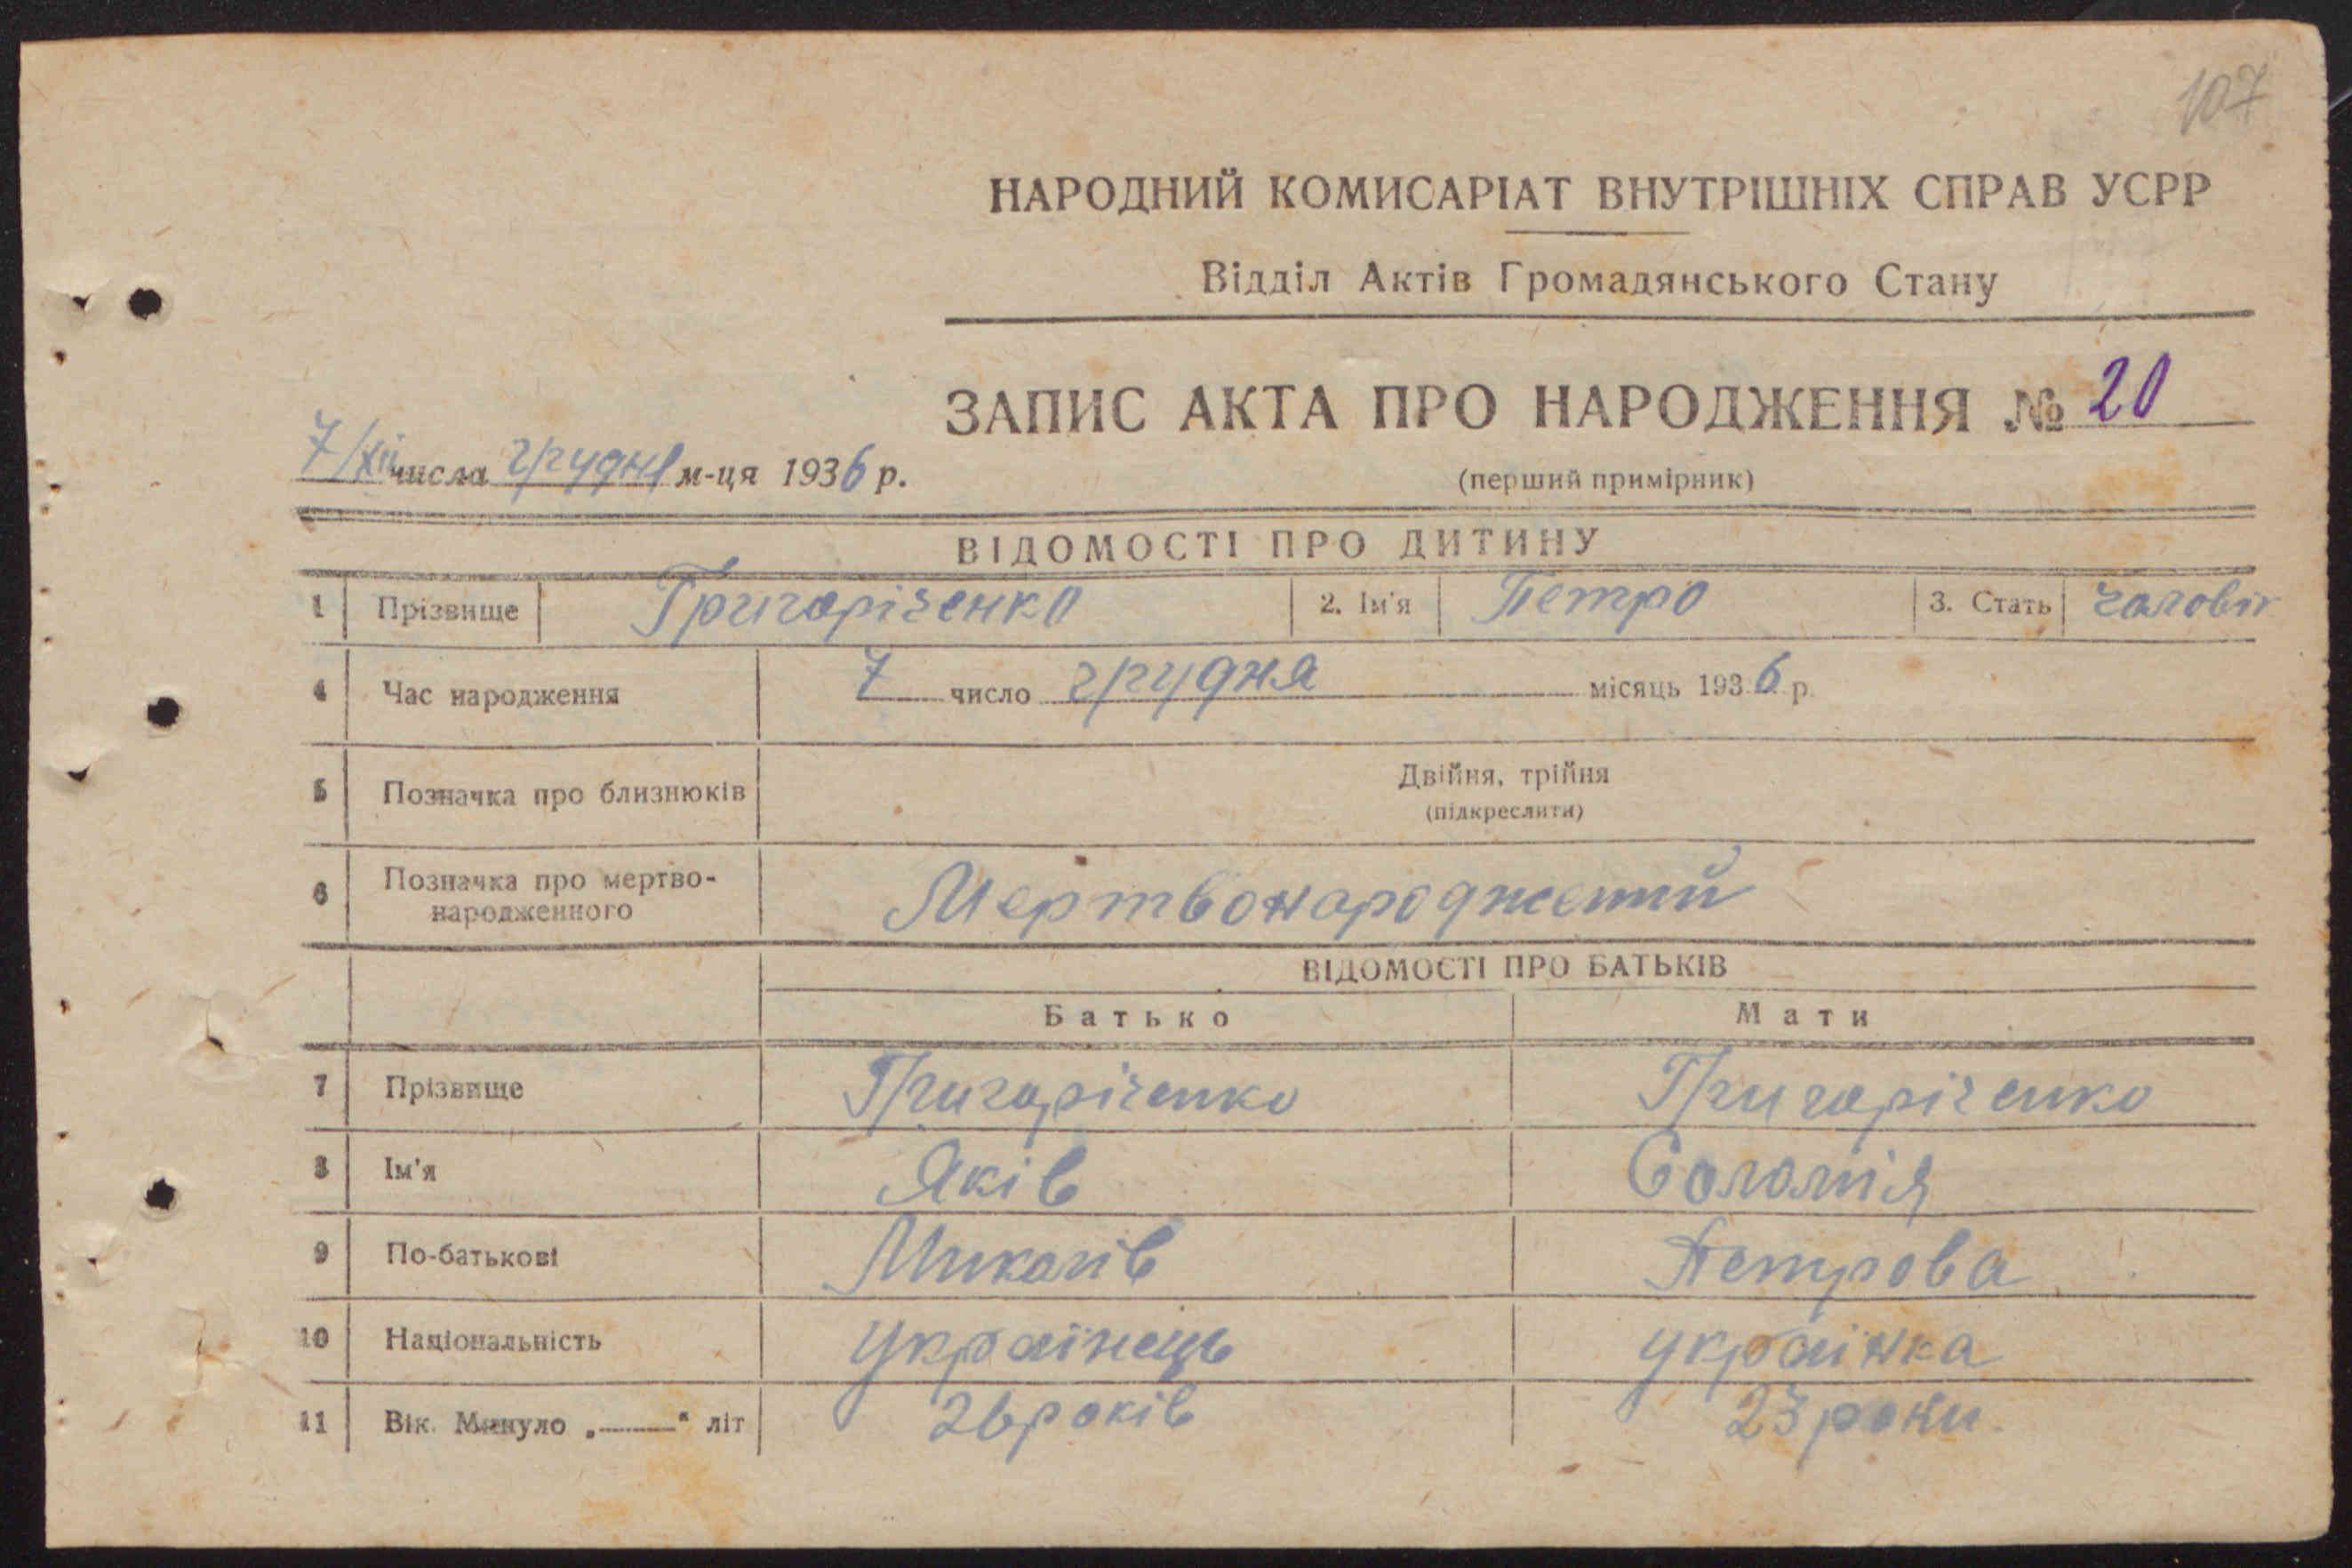 107
НАРОДНИЙ КОМИСАРІАТ ВНУТРІШНІХ СПРАВ УСРР
Відділ Актів Громадянського Стану
ЗАПИС АКТА ПРО НАРОДЖЕННЯ № 20
7/XII числа грудня м-ця 1936 р.
(перший примірник)
ВІДОМОСТІ ПРО ДИТИНУ
1 Прізвище Григоріченко 2. Ім'я Петро 3. Стать чоловік
4 Час народження 7 число грудня місяць 1936 р.
5 Позначка про близнюків Двійня, трійня
(підкреслити)
6 Позначка про мертво-
народженного Мертвонароджений
ВІДОМОСТІ ПРО БАТЬКІВ
Батько Мати
7 Прізвище Григоріченко Григоріченко
8 Ім'я Яків Соломія
9 По-батькові Миколів Петрова
10 Національність українець українка
11 Вік. Минуло „——" літ 26 років 23 роки.